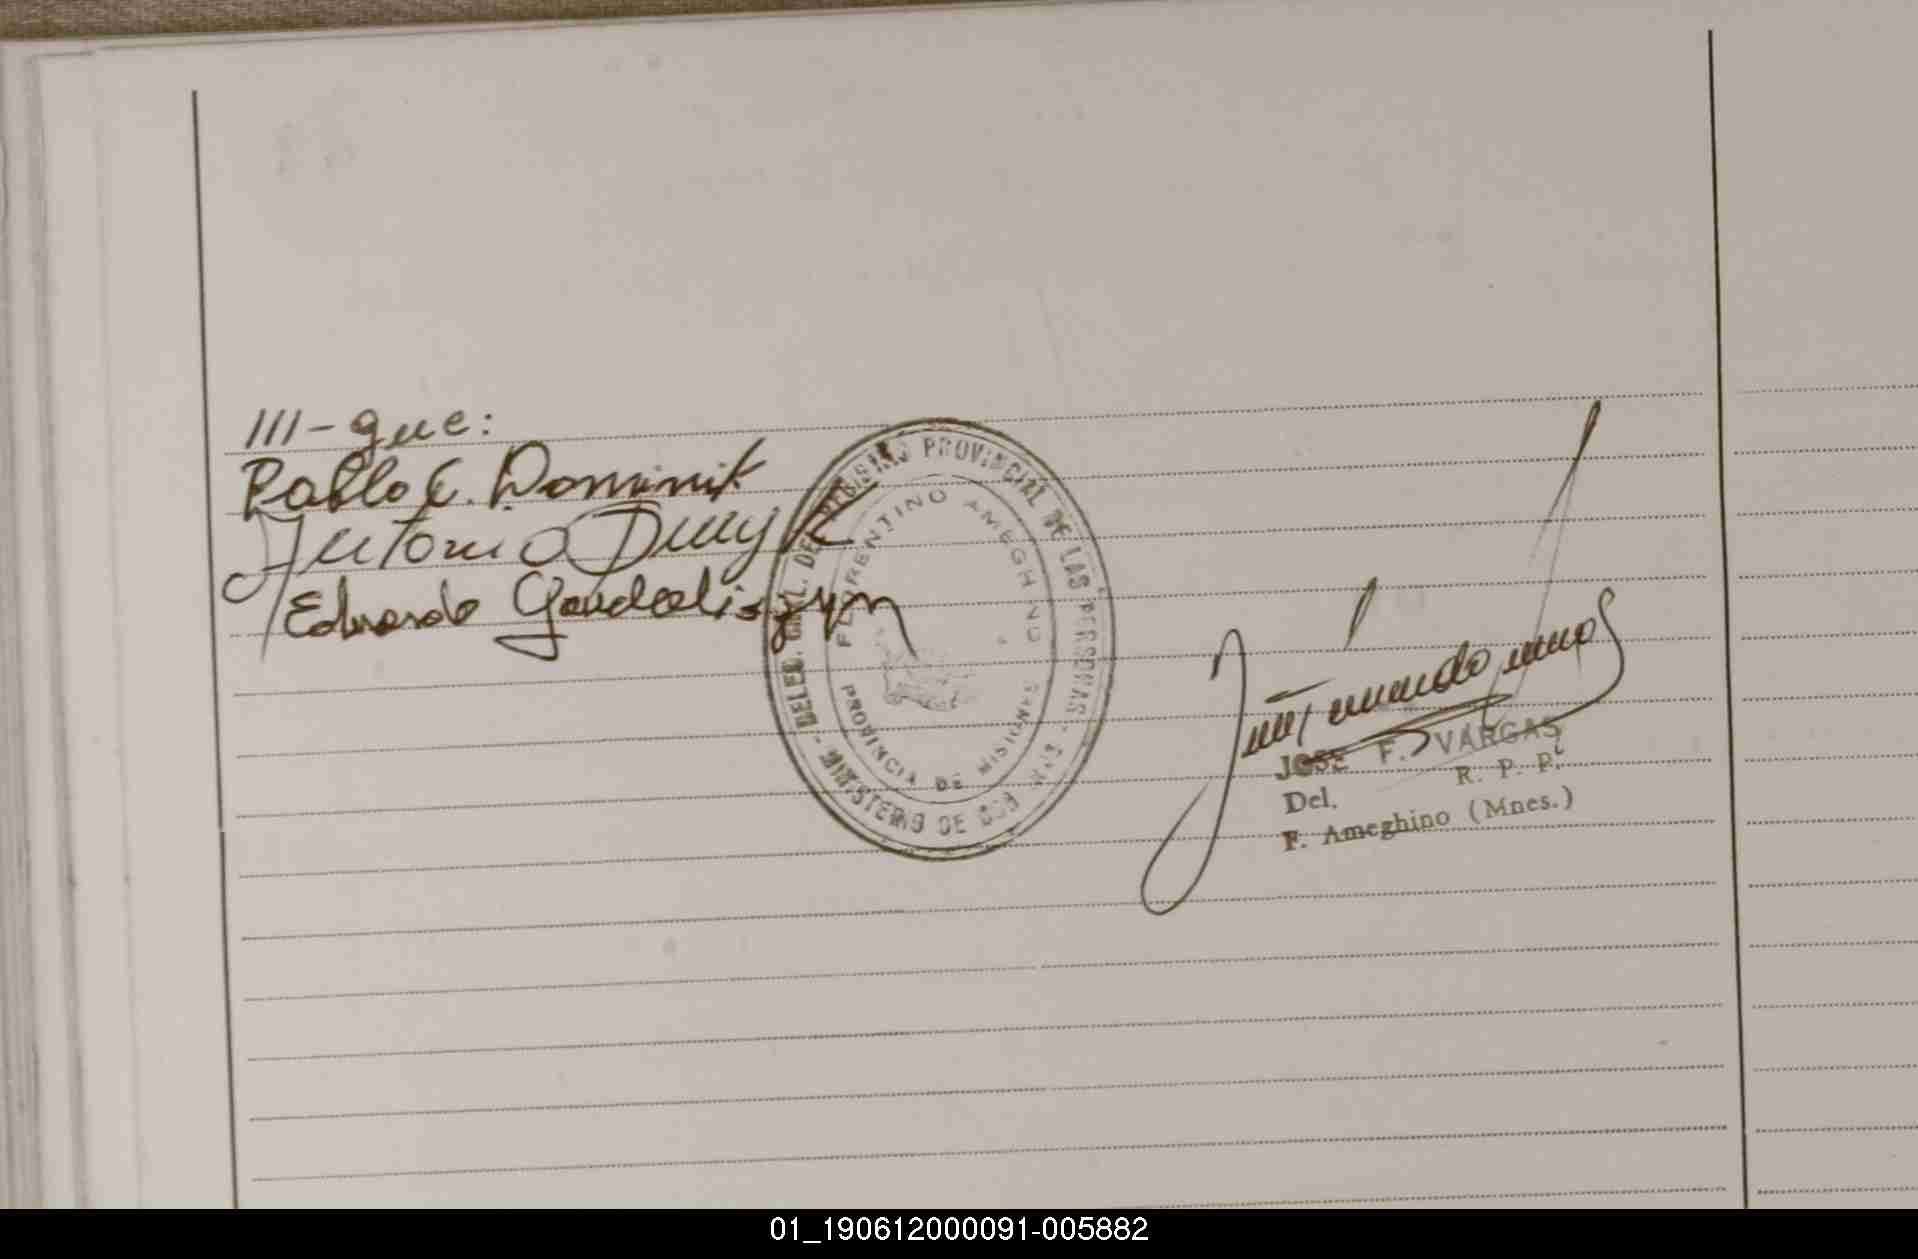 III-gue:
Pablo C. Dominik
Antonio
Eduardo
DELEG. GRAL. DEL REGISTRO PROVINCIAL DE LAS PERSONAS - MINISTERIO DE GOB
FLORENTINO AMEGHINO
PROVINCIA DE MISIONES
JOSE F. VARGAS
Del. R. P. P.
F. Ameghino (Mnes.)
01_190612000091-005882